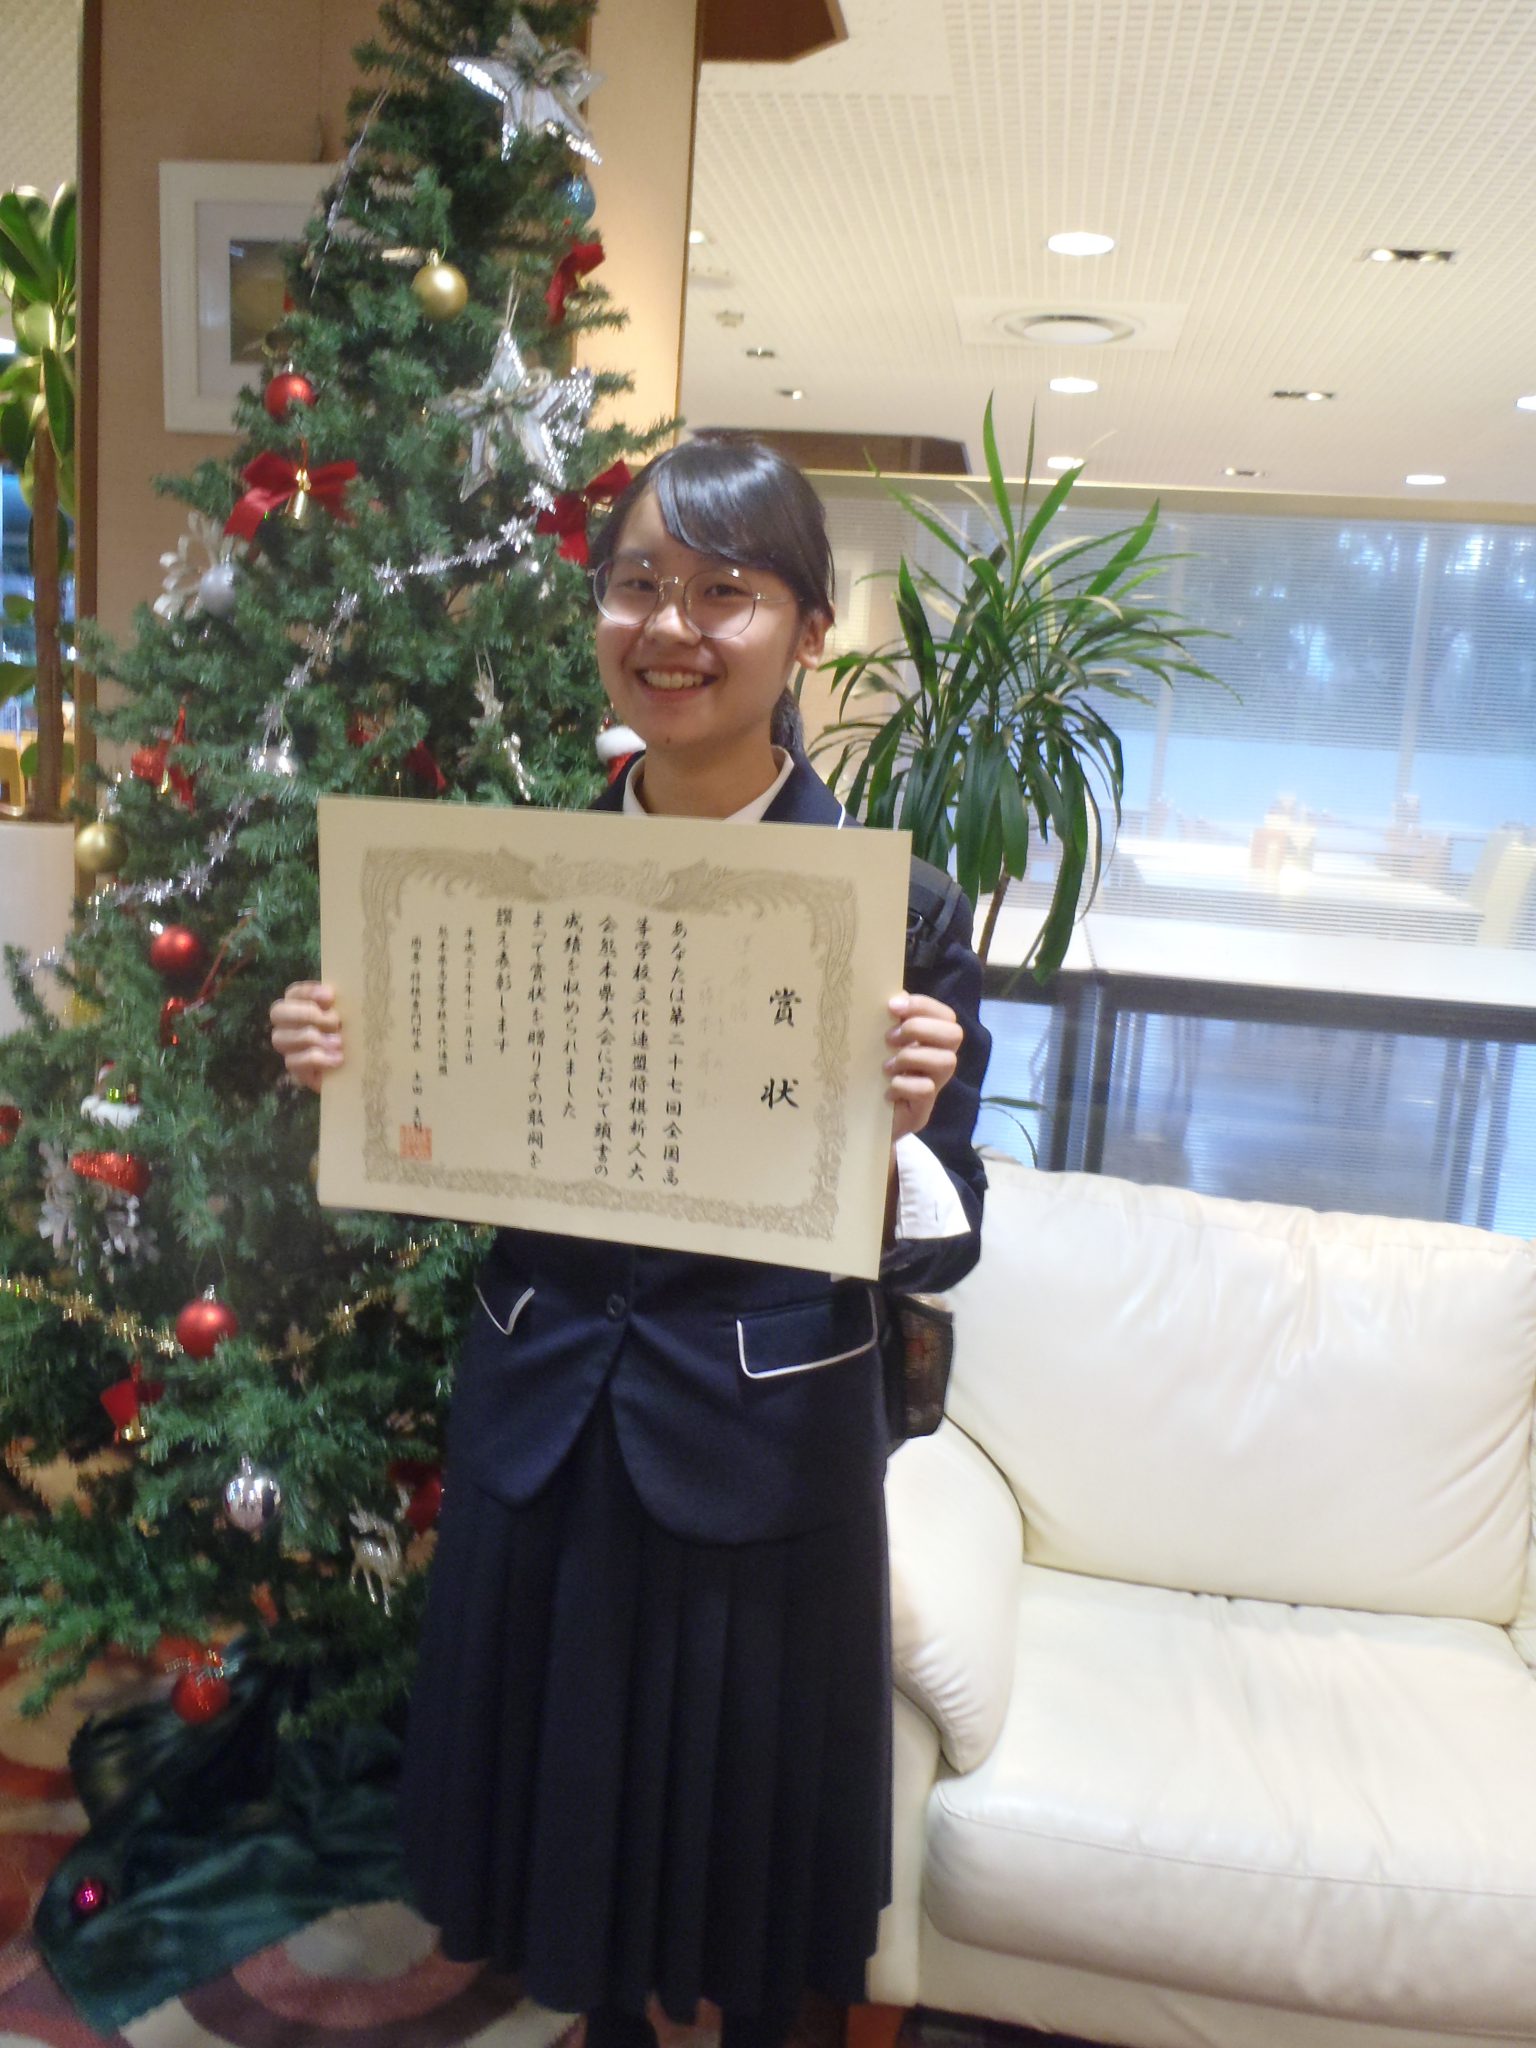 賞状
あなたは第二十七回全国高
等学校文化連盟将棋新人大
会熊本県大会において頭書の
成績を収められました
よって賞状を贈りその敢闘を
讃え表彰します
平成三十年十一月十日
熊本県高等学校文化連盟
囲碁・将棋専門部長